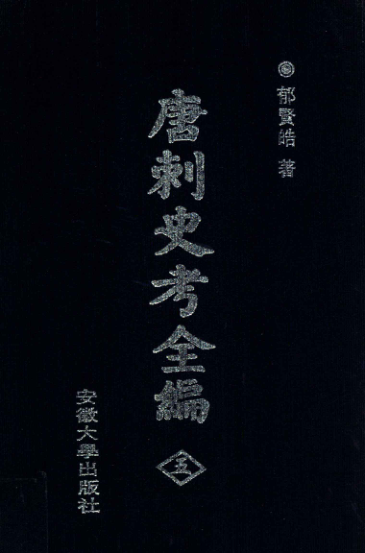 郁賢皓 著
唐刺史考全編
五
安徽大學出版社